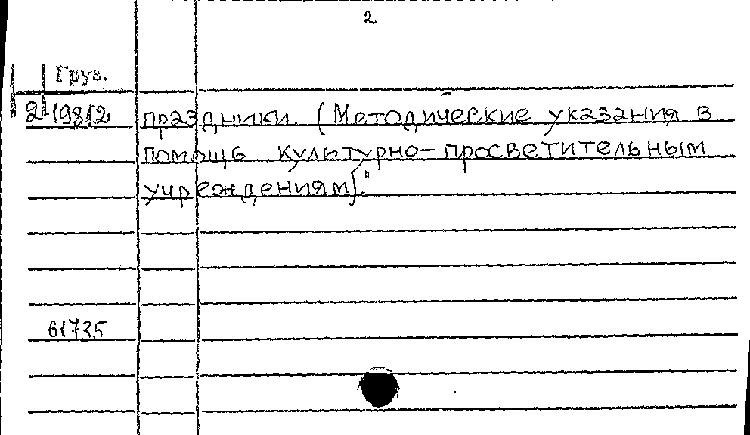 2
Груз.
2 1981/2 праздники. (Методические указания в
помощь культурно-просветительным
учреждениям)."
61735